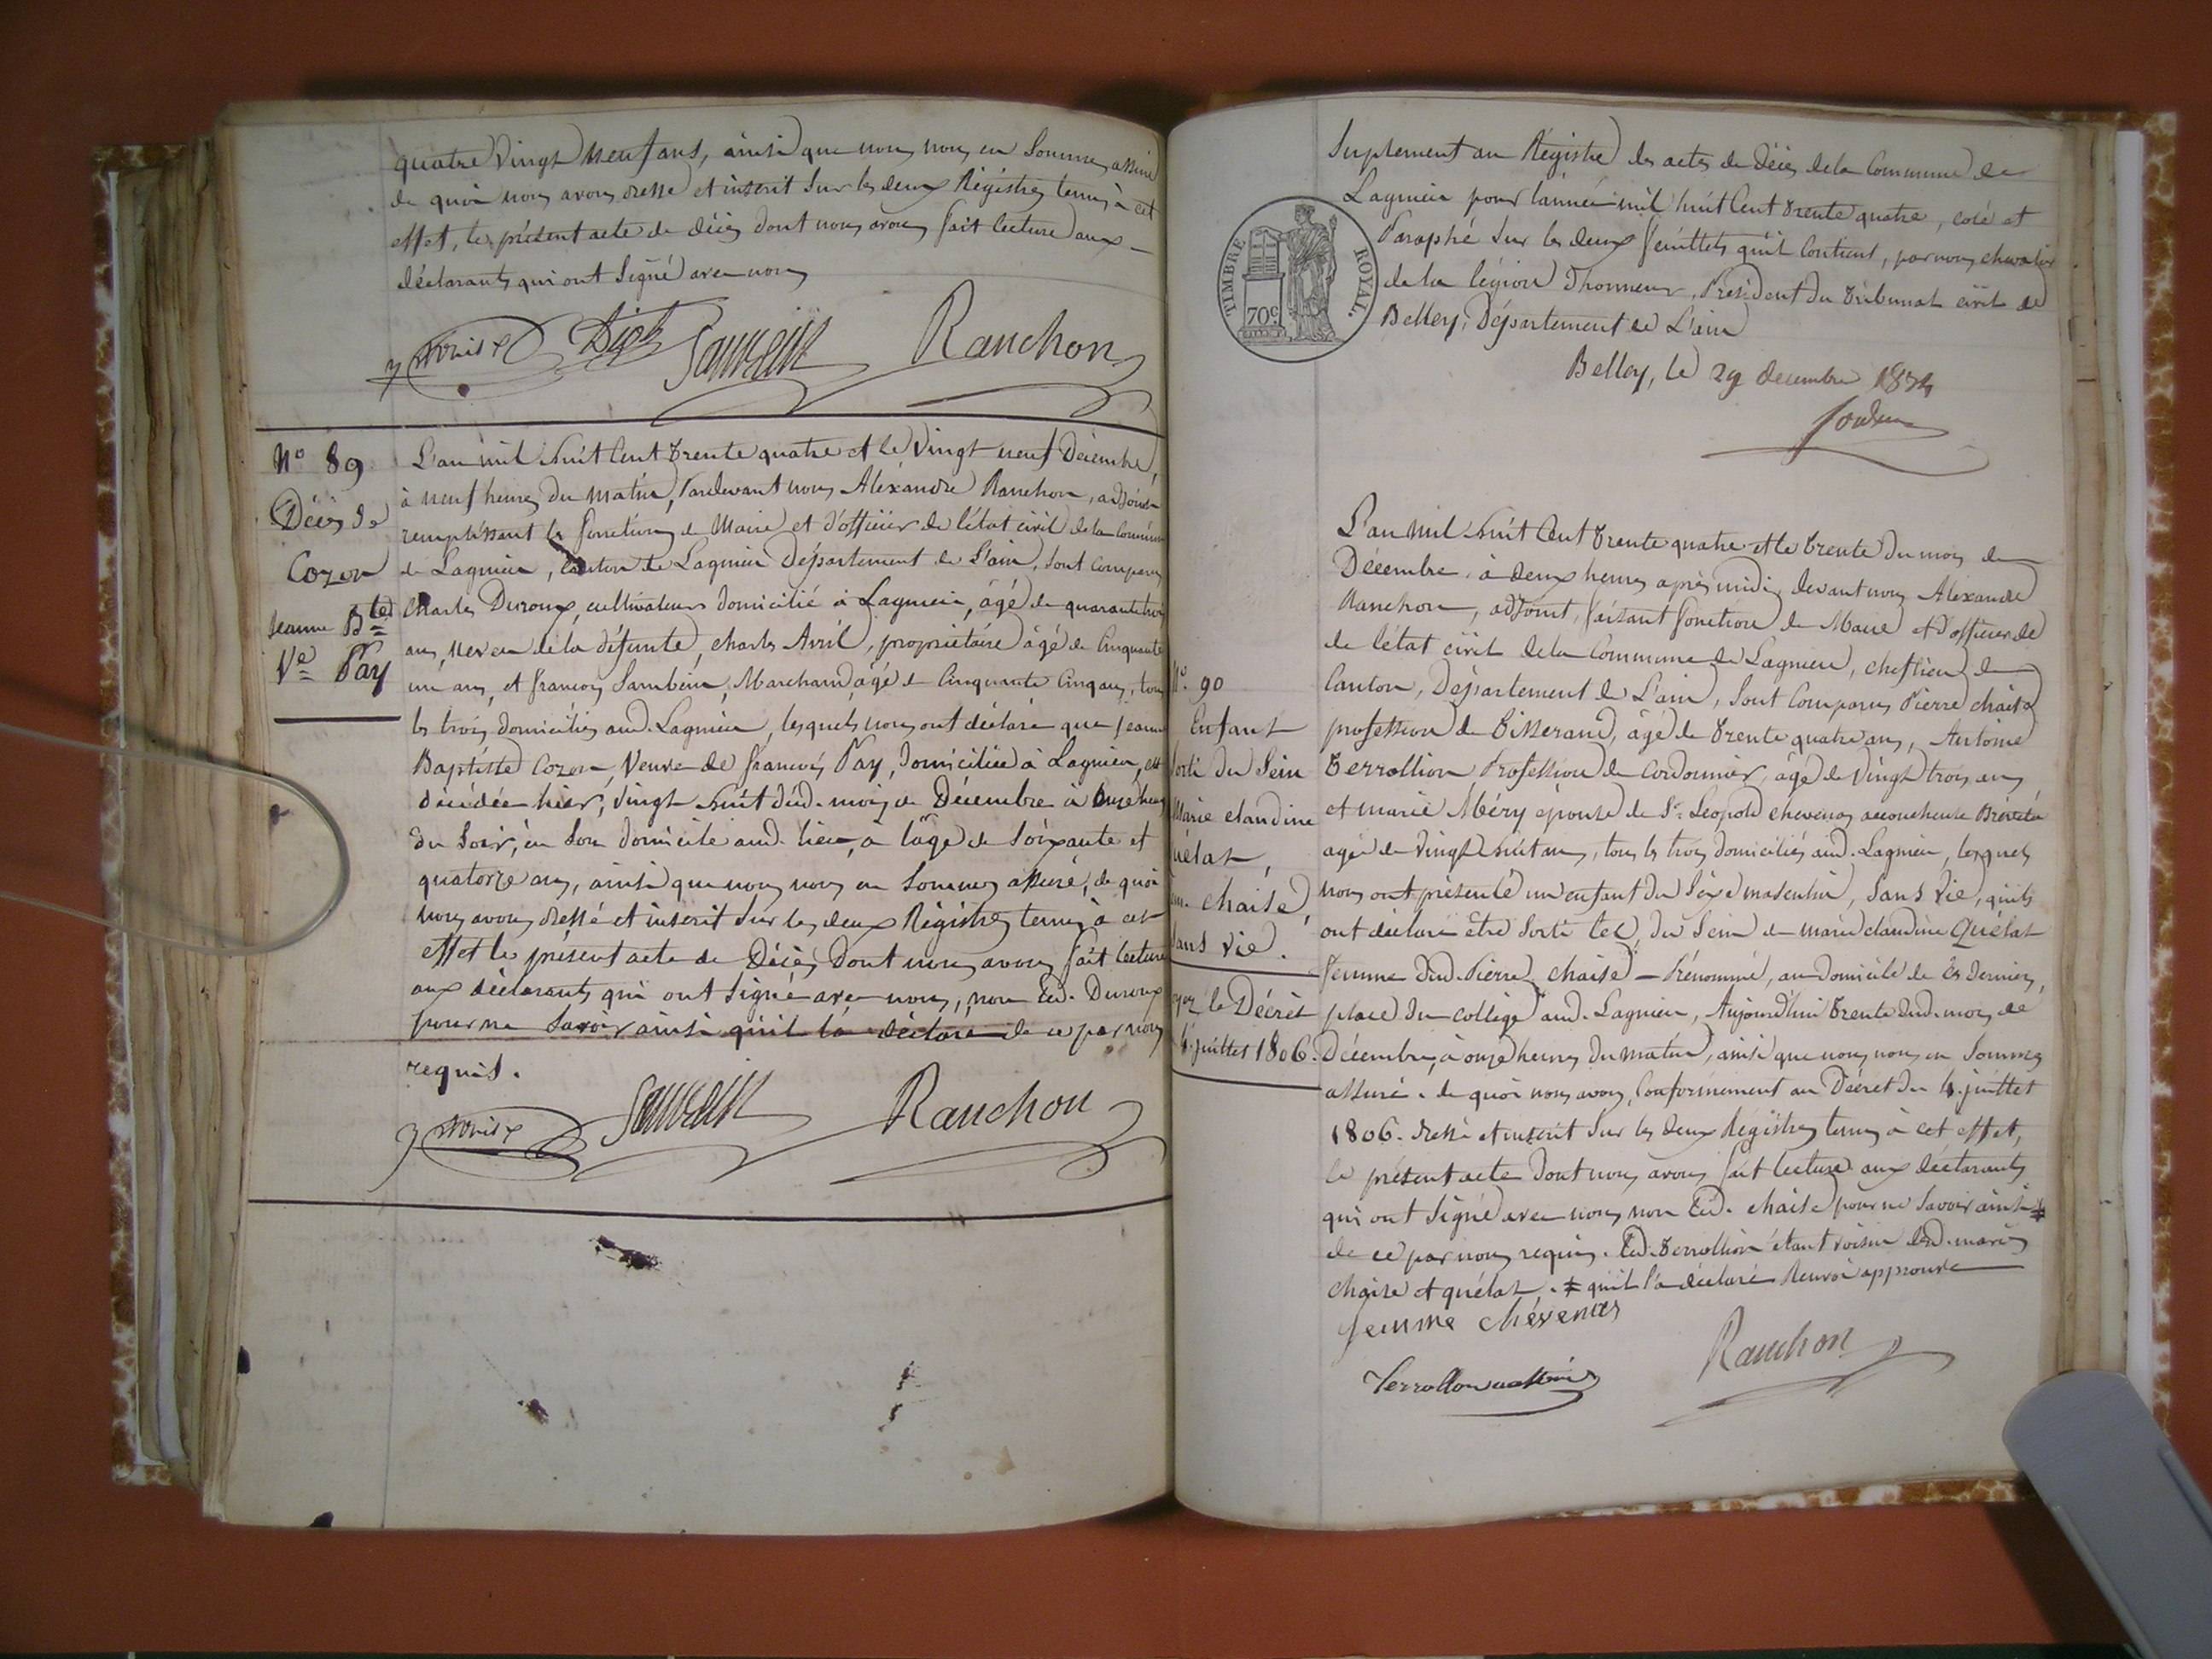 quatre Vingt Neuf ans, ainsi que nous nous en Sommes assuré
de quoi nous avons dressé et inscrit Sur les deux Régistres tenus à cet
effet, le présent acte de décès dont nous avons fait lecture aux
déclarants qui ont Signé avec nous
Ranchon
No 89
Décès de
Cozon
Jeanne Bte
Ve Pay
L'an mil huit Cent trente quatre et le Vingt neuf Décembre,
à neuf heures du matin, Pardevant nous Aléxandre Ranchon, adjoint
remplissant les fonctions de Maire et d'officier de l'état civil de la Commune
de Lagnieu, Canton de Lagnieu Département de L'ain, Sont Comparus
Charles Duroux, cultivateur domicilié à Lagnieu, âgé de quarante trois
ans, neveu de la défunte, charles Avril, propriétaire âgé de Cinquante
un ans, et françois Sambein, Marchand, âgé de Cinquante Cinq ans, tous
les trois domiciliés aud. Lagnieu, lesquels nous ont déclaré que Jeanne
Baptiste Cozon, Veuve de françois Pay, domiciliée à Lagnieu, est
décédée hier, vingt huit dud. mois de Décembre à Onze heures
du Soir, en Son domicile aud. lieu, à l'âge de Soixante et
quatorze ans, ainsi que nous nous en Sommes assuré, de quoi
nous avons dressé et inscrit Sur les deux Régistres tenus à cet
effet le présent acte de Décès, dont nous avons fait lecture
aux déclarants qui ont Signé avec nous, non led. Duroux
pour ne Savoir ainsi qu'il l'a déclaré de ce par nous
requis.
Ranchon
Suplement au Régistre des actes de Décès de la Commune de
Lagnieu pour l'année mil huit Cent trente quatre, coté et
Paraphé Sur les deux feuillets qu'il Contient, par nous, chevalier
de la légion d'honneur, Président du tribunal civil de
Belley, Département de L'ain
TIMBRE ROYAL.
70c
Belley, le 29 decembre 1834
No. 90
Enfant
Sorti du Sein
Marie claudine
Quélat,
chaise,
Sans vie.
le Décret
4. juillet 1806.
L'an mil huit Cent trente quatre et le trente du mois de
Décembre, à deux heures après midi, devant nous Alexandre
Ranchon, adjoint, faisant fonction de Maire et d'officier de
de l'état civil de la Commune de Lagnieu, chef lieu de
Canton, Département de L'ain, Sont Comparus Pierre chaise
profession de tisserand, âgé de trente quatre ans, Antoine
terrollion Profession de Cordonnier, âgé de Vingt trois ans
et marie Méry épouse de Sr. Leopold chevenos accoucheuse Brévetée
agée de vingt huit ans, tous les trois domiciliés aud. Lagnieu, lesquels
nous ont présenté un enfant du Séxe masculin, Sans Vie, qu'ils
ont déclaré être Sorti tel, du Sein de marie claudine Quélat
femme dud. Pierre chaise — Prénommé, au domicile de ces derniers,
place du collège aud. Lagnieu, Aujourd'hui trente dud. mois de
Décembre, à onze heures du matin, ainsi que nous nous en Sommes
assuré. de quoi nous avons, Conformément au Décret du 4. juillet
1806. dressé et inscrit Sur les deux Régistres tenus à cet effet,
le présent acte dont nous avons fait lecture aux déclarants
qui ont Signé avec nous, non led. chaise pour ne Savoir ainsi ‡
de ce par nous requis. Led. terrollion étant voisin desd. mariés
chaise et quélat. ‡ qu'il l'a déclaré Renvoi approuvé
femme chévenos
Ranchon